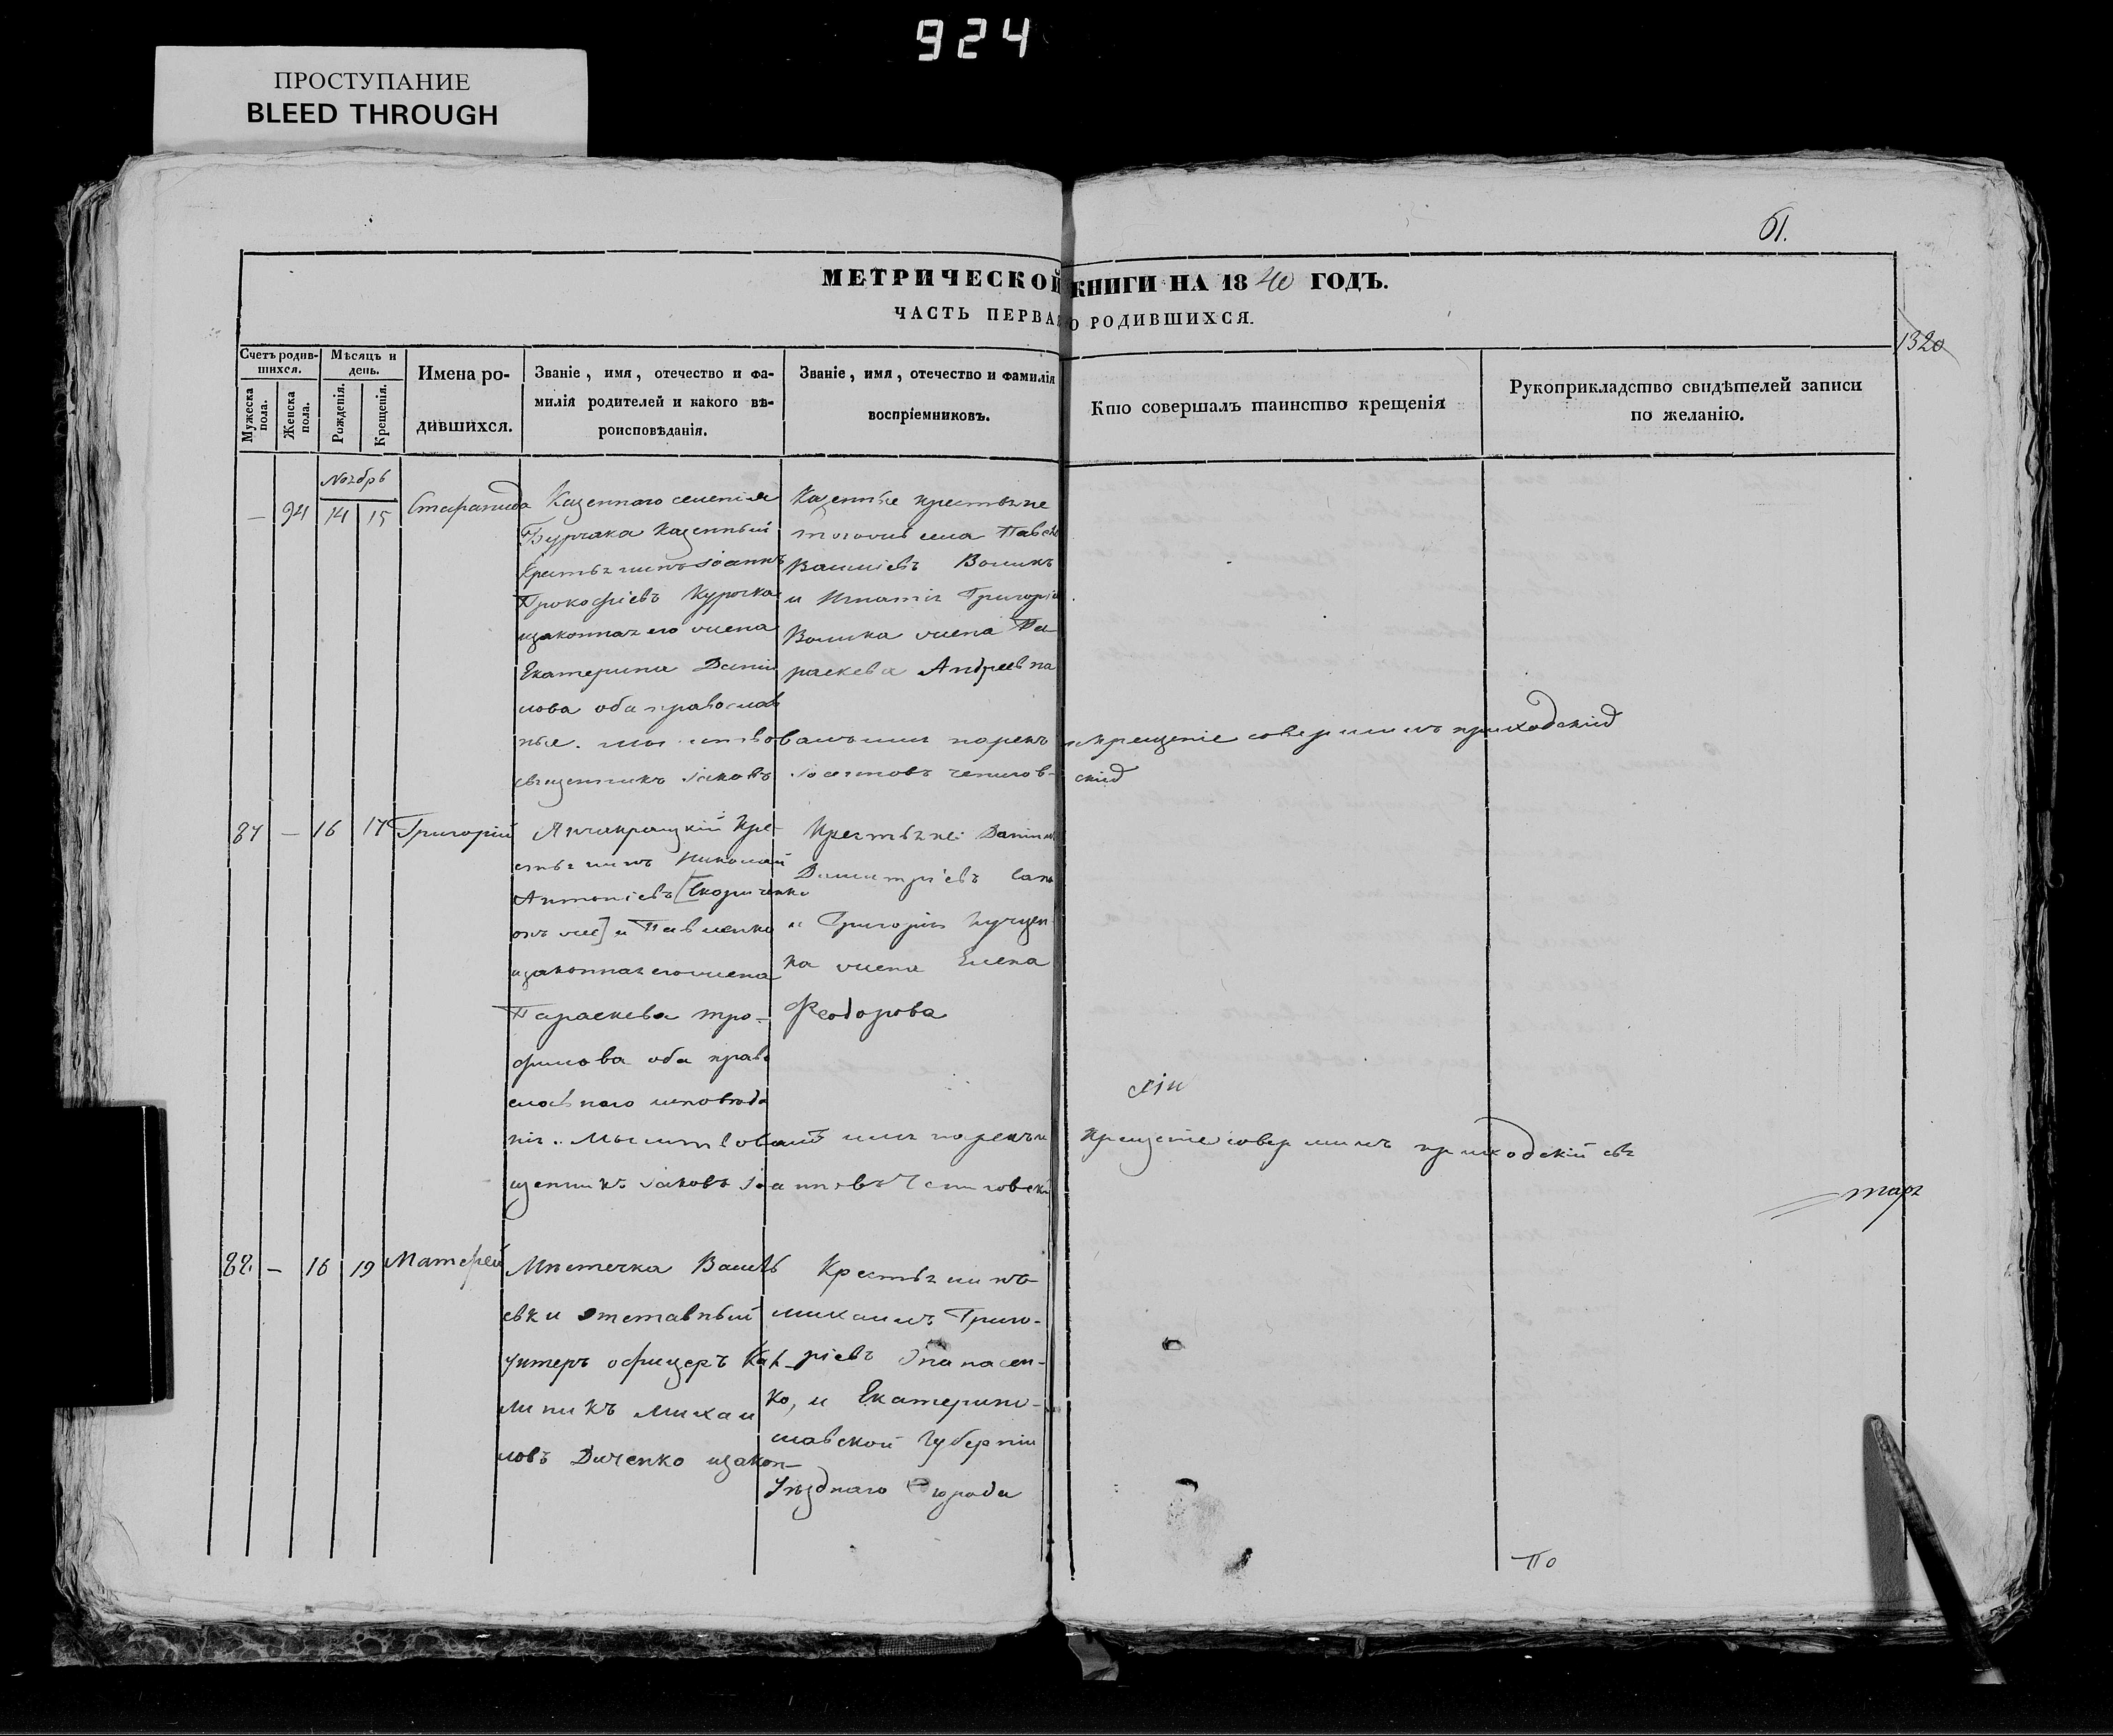 924
ПРОСТУПАНИЕ
BLEED THROUGH
61.
МЕТРИЧЕСКОЙ КНИГИ НА 1840 ГОДЪ.
ЧАСТЬ ПЕРВАЯ О РОДИВШИХСЯ.
1320
Счетъ родив-
шихся.
Мужеска пола.
Женска пола.
Мѣсяцъ и день.
Рожденія.
Крещенія.
Имена ро-
дившихся.
Званіе, имя, отечество и фа-
милія родителей и какого вѣ-
роисповѣданія.
Званіе, имя, отечество и фамилія
воспріемниковъ.
Кто совершалъ таинство крещенія
Рукоприкладство свидѣтелей записи
по желанію.
Ноябрь
— 94 14 15
Казеннаго селенія
Бурчака казенный
крестьянинъ Іоаннъ
Прокофіевъ Курочка
изаконная его жена
Екатерина Дани
лова оба православ
ные.
Казенные крестьяне
тогожъ села Павелъ
Воликъ
и Игнатія Григорія
Волика жена Па
раскева Андреевна
молитвовалъ имя нарекъ и крещеніе совершилъ приходскій
священникъ Іаковъ Іоанновъ Чепигов-
скій
87 — 16 17 Григорій
кре-
стьянинъ Николай
Антоніевъ
онъ же] и Павленко
изаконная его жена
Параскева Тро-
фимова оба право
славнаго исповѣда
нія.
Крестьяне: Даніилъ
Димитріевъ
и Григорія
ка жена Елена
Феодорова
Молитвовалъ имя нарекъ и крещеніе совершилъ приходскій свя
щенникъ Іаковъ Іоанновъ Чепиговскій
88. — 16 19 Матфей
Мѣстечка Василь
евки отставный
унтеръ офицеръ Кал
линикъ Михаи
ловъ Диченко изакон-
Крестьянинъ
Михаилъ Григо-
ріевъ Опанасен-
ко, и Екатерино-
славской Губерніи
Уѣзднаго города
По